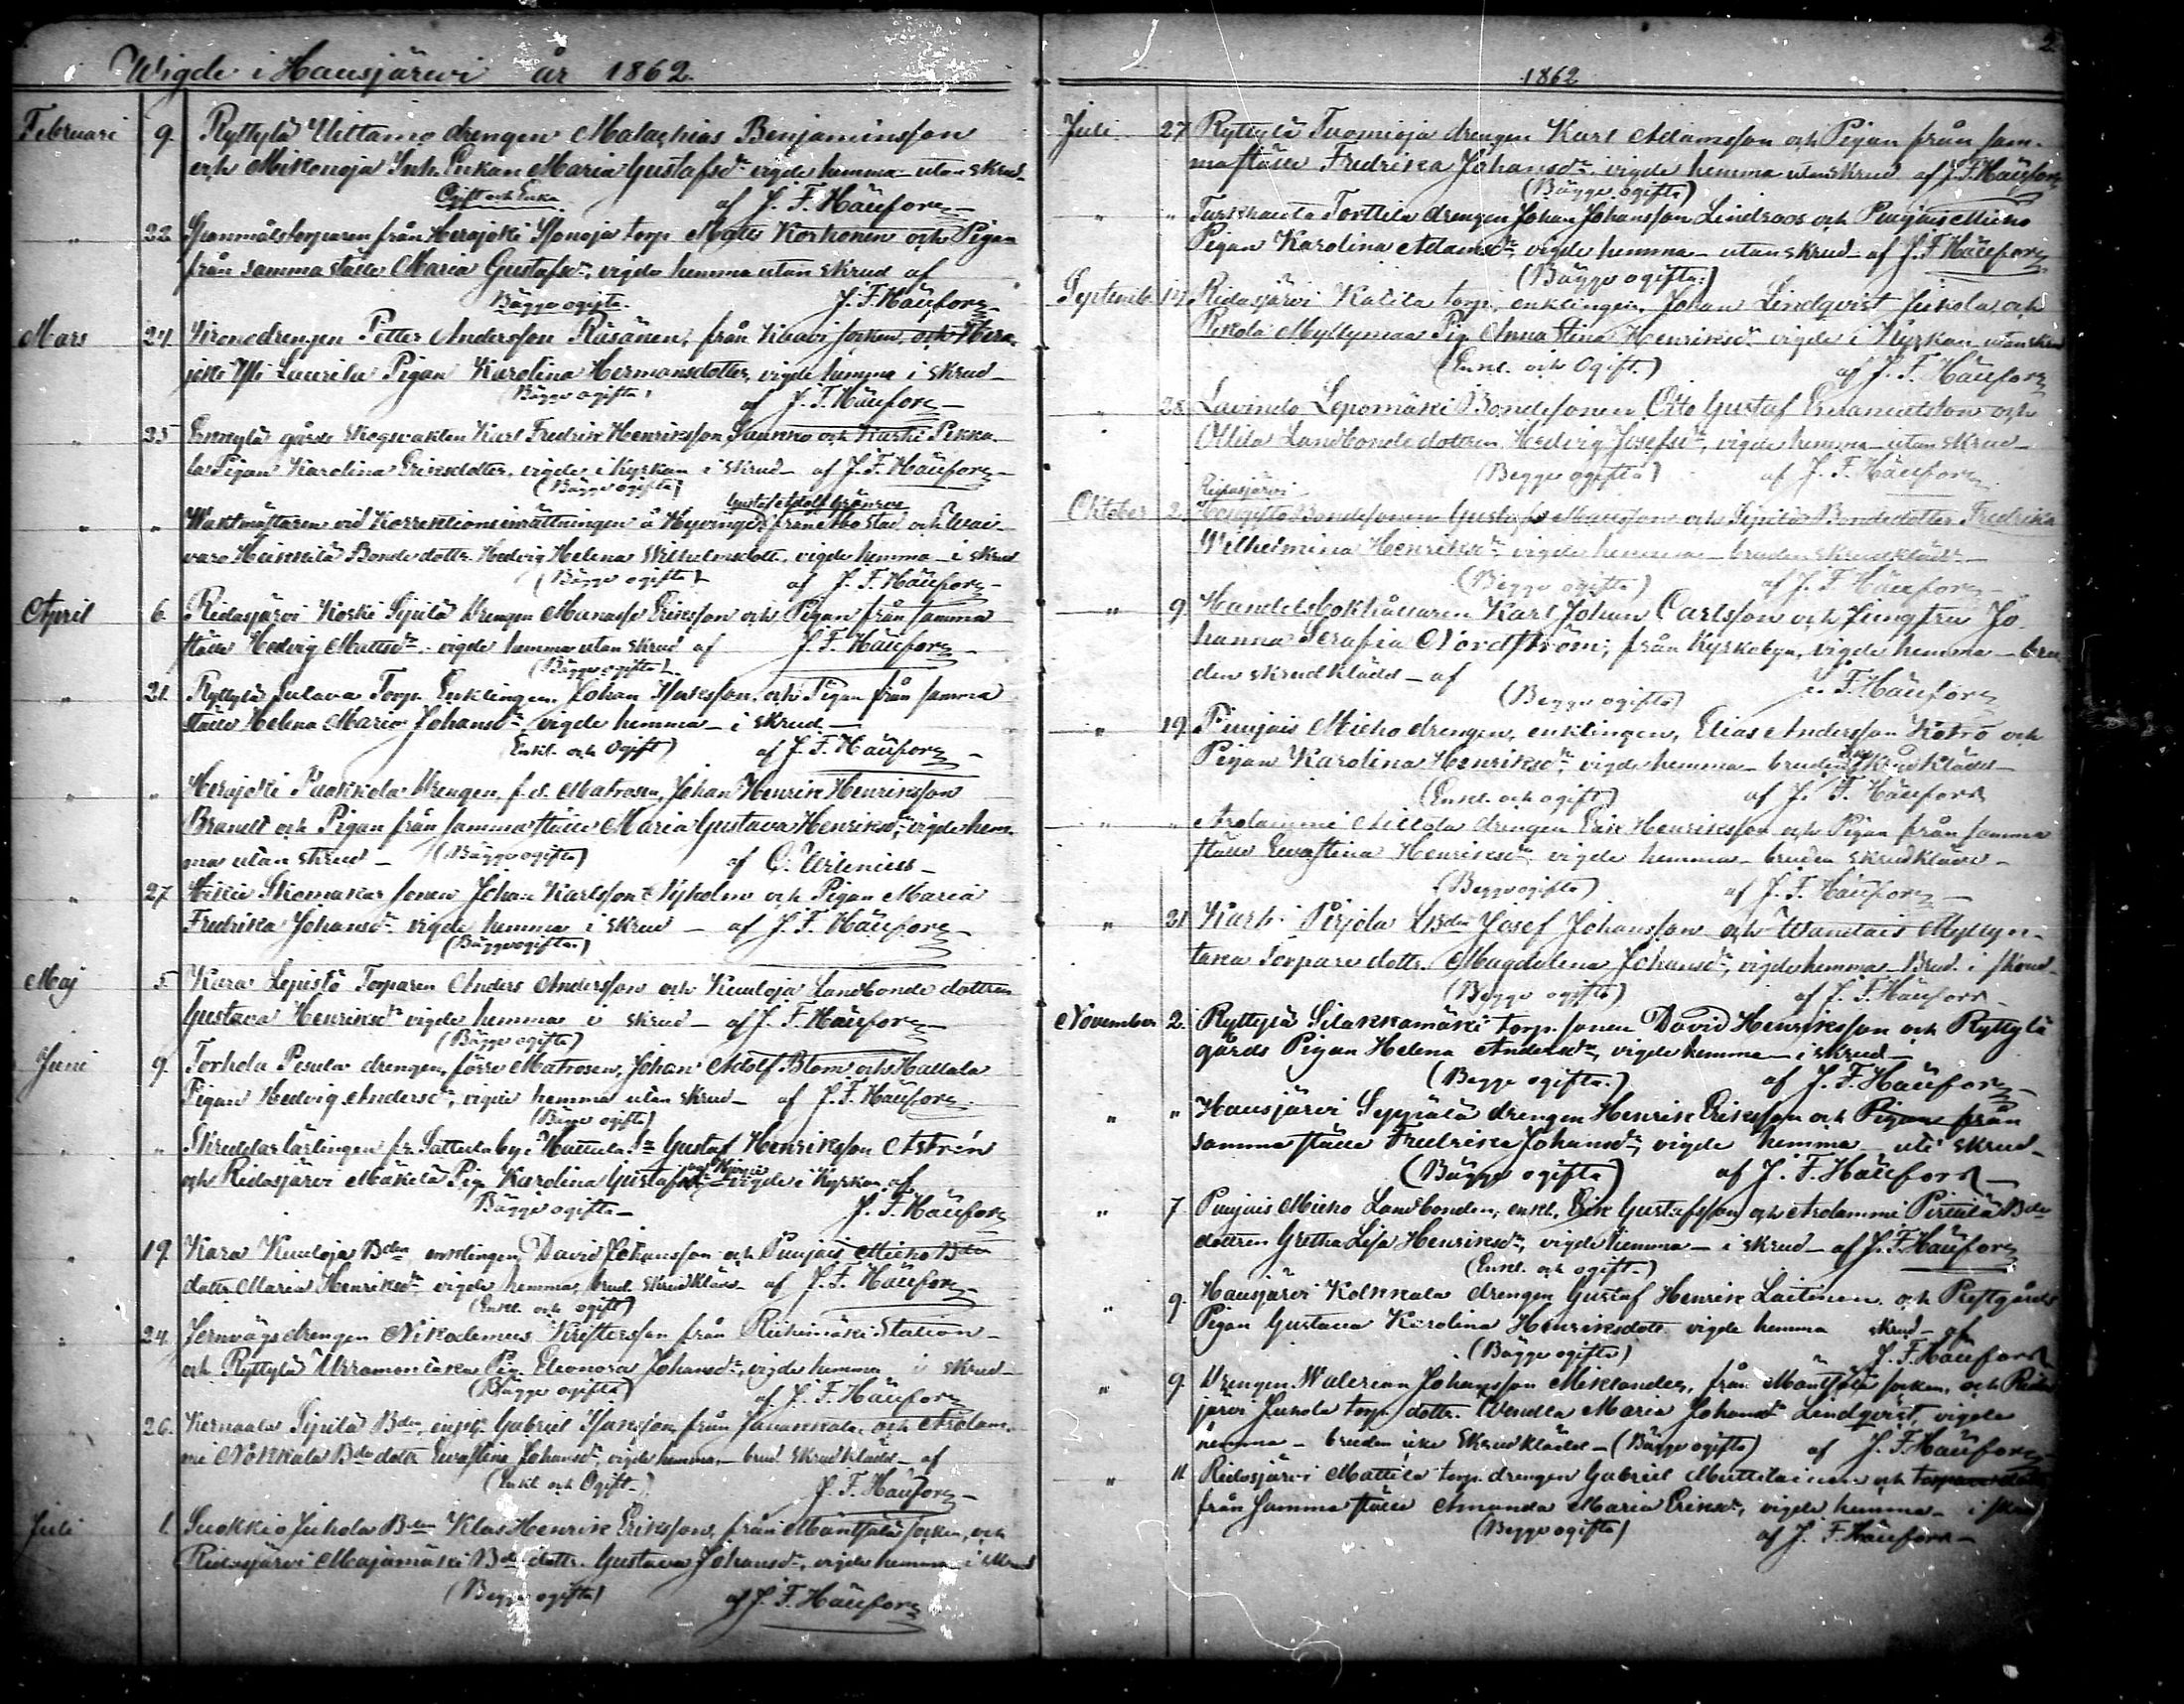 Wigde i Hausjärwi år 1862.
Februari 9. Ryttylä Uittamo drengen Malachias Benjaminsson
och Mikonoja Inh. Enkan Maria Gustafsdr vigde hemma utan skrud
Ogift och Enka af J. F. Häufors
" 22. Spanmålstorparen från Herajoki Isonoja torp Matts Korhonen och Pigan
från samma ställe Maria Gustafsdr, vigde hemma utan skrud af
Bägge ogifta. J. F. Häufors
Mars 24. Kronodrengen Petter Andersson Räsänen, från Kaavi socken, och Hera-
joki Yli Laurila Pigan Karolina Hermansdotter, vigde hemma i skrud
(Bägge ogifta) af J. F. Häufors
" 25 Erkylä gårds skogvakten Karl Fredrik Henriksson och Karhi Pekka-
la Pigan Karolina Eriksdotter, vigde i Kyrkan i skrud af J. F. Häufors
(Bägge ogifta)
Gustaf Adolf Grönroos
" " Waktmästaren vid Korrektionsinrättningen å Hyvinge från Åbo stad och
Heikkilä Bonde dottr. Hedvig Helena Wilhelmsdott. vigde hemma i skrud
(Bägge ogifta) af J. F. Häufors
April 6. Ridasjärvi Koski Sipilä Drengen Manasse Eriksson och Pigan från samma
ställe Hedvig Mattsdr. vigde hemma utan skrud af J. F. Häufors
(Bägge ogifta)
" 21. Ryttylä Torp. Enklingen Johan Isaksson och Pigan från samma
ställe Helena Maria Johansdr, vigde hemma i skrud
(Enkl. och Ogift) af J. F. Häufors
" " Herajoki Puokkola Drengen, f. d. Matrosen, Johan Henrik Henriksson
Brandt och Pigan från samma ställe Maria Gustava Henriksdr, vigde hem-
ma utan skrud (Bägge ogifta) af C. Urlenius
" 27. Hikiä Skomakar sonen Johan Karlsson Nyholm och Pigan Maria
Fredrika Johansdr vigde hemma i skrud af J. F. Häufors
(Bägge ogifta)
Maj 5 Kara Lepistö Torparen Anders Andersson och Kuuloja Landbonde dottren
Gustava Henriksdr vigde hemma i skrud af J. F. Häufors
(Bägge ogifta)
Juni 9. Torhola Pesula drengen, förre Matrosen, Johan Adolf Blom och Hallala
Pigan Hedvig Andersdr, vigde hemma utan skrud af J. F. Häufors
(Bägge ogifta)
" " Skreddar lärlingen fr. Sattula by i Hattula Sn Gustaf Henriksson Astrén
och Ridasjärvi Mäkelä Pig. Karolina Gustafsdr vigde i Kyrkan af
Bägge ogifta J. F. Häufors
" 19. Kara Kuuloja Bden enklingen David Johansson och Punjais Micko Bde
dottr. Maria Henriksdr vigde hemma, brud. skrudklädd af J. F. Häufors
(Enkl. och ogift)
" 24. Jernvägsdrengen Nikodemus Kristersson från Riihimäki Station
och Ryttylä Pig. Eleonora Johansdr, vigde hemma i skrud
(Bägge ogifta) af J. F. Häufors
26. Kernaala Sipilä Bden, Gabriel Isaksson från Janakkala och Arolam-
mi Nokkala Bde dottr Evastina Johansdr, vigde hemma brud skrudklädd af
(Enkl och Ogift.) J. F. Häufors
Juli 1. Suokkio Juhola Bden Klas Henrik Eriksson, från Mäntsälä socken, och
Ridasjärvi Majamäki Bde dottr. Gustava Johansdr, vigde hemma i skrud
(Begge ogifta) af J. F. Häufors
2.
1862
Juli 27 Ryttylä Tuomioja drengen Karl Adamsson och Pigan från sam-
ma ställe Fredrika Johansdr. vigde hemma utan skrud af J. F. Häufors
(Bägge ogifta)
" " Turkhauta Torttila drengen Johan Johansson Lindroos och Punjais Micko
Pigan Karolina Adamsdr, vigde hemma utan skrud af J. F. Häufors
(Bägge ogifta.)
Septemb. 14. Ridasjärvi Kalila torp. enklingen Johan Lindqvist Juhola och
Myllymaa Pig Anna Stina Henriksdr vigde i Kyrkan utan skrud
(Enkl. och Ogift.) af J. F. Häufors
" 28. Lavinto Lepomäki Bondesonen Otto Gustaf Emanuelsson och
Ollila Landbonde dottren Hedvig Josefsdr, vigde hemma utan skrud
(Begge ogifta) af J. F. Häufors
Ridasjärvi
Oktober 2. Bondesonen Gustaf Mattsson och Sipilä Bondedotter Fredrika
Wilhelmina Henriksdr vigde hemma bruden skrudklädd
(Begge ogifta) af J. F. Häufors
" 9. Handelsbokhållaren Karl Johan Carlsson och Jungfru Jo-
hanna Serafia Nordström, från Kyrkobyn, vigde hemma bru-
den skrudklädd af (Begge ogifta) J. F. Häufors
" 19. Punjais Micko drengen, enklingen, Elias Andersson Kotro och
Pigan Karolina Henriksdr, vigde hemma bruden skrudklädd
(Enkl. och ogift) af J. F. Häufors
" " Arolammi Aittola drengen Erik Henriksson och Pigan från samma
ställe Evastina Henriksdr, vigde hemma bruden skrudklädd
(Begge ogifta) af J. F. Häufors
" 21 Karhi Pirjola Bden Josef Johansson och Wantais Myllyn-
taka Torpare dottr. Magdalena Johansdr, vigde hemma Brud. i skrud
(Begge ogifta) af J. F. Häufors
November 2. Ryttylä Silakkamäki torp. sonen David Henriksson och Ryttylä
gårds Pigan Helena Andersdr, vigde hemma i skrud
(Begge ogifta.) af J. F. Häufors
" " Hausjärvi Seppälä drengen Henrik Eriksson och Pigan från
samma ställe Fredrika Johansdr, vigde hemma uti skrud
(Bägge ogifta) af J. F. Häufors
" 7 Punjais Micko Landbonden, enkl. Erik Gustafsson och Arolammi Pirttilä Bde
dottren Gretha Lisa Henriksdr, vigde hemma i skrud af J. F. Häufors
(Enkl. och ogift.)
" 9. Hausjärvi Kolkkala drengen Gustaf Henrik Laitinen och Prestgårds
Pigan Gustava Karolina Henriksdott. vigde hemma skrud af
(Bägge ogifta) J. F. Häufors
" 9. Drengen Walerian Johansson Miklander, från Mäntsälä socken, och Rida-
järvi Juhola torp. dottr. Wendla Maria Johansdr Lindqvist, vigde
hemma bruden icke skrudklädd (Bägge ogifta) af J. F. Häufors
" 11. Ridasjärvi Mattila torp. drengen Gabriel Mattilainen och
från samma ställe Amanda Maria Eriksdr, vigde hemma i skrud
(Begge ogifta) af J. F. Häufors